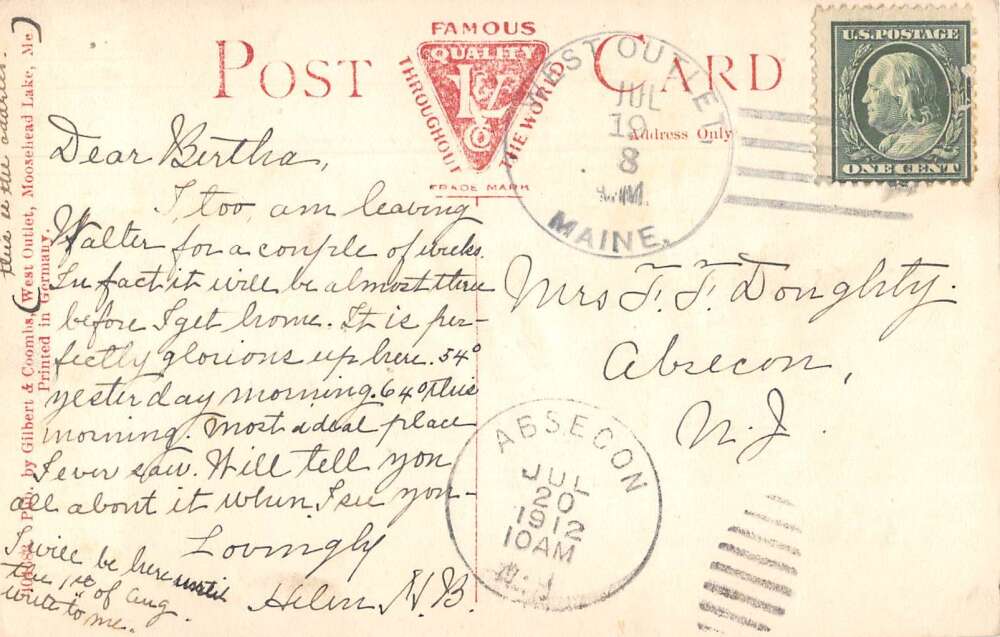 POST CARD
FAMOUS
QUALITY
THROUGHOUT
THE WORLD
L&V
Co
TRADE MARK
Address Only
U.S. POSTAGE
ONE CENT
WEST OUTLET
JUL
19
8
M
MAINE.
Dear Bertha,
I too, am leaving
Walter for a couple of weeks.
In fact it will be almost three
before I get home. It is per-
fectly glorious up here. 54°
yesterday morning. 64° this
morning. Most ideal place
I ever saw. Will tell you
all about it when I see you-
Lovingly
Helen N B.
I will be here until
the 1st of Aug
write to me.
this is the address.
Pub. by Gilbert & Coombs, (West Outlet, Moosehead Lake, Me.)
Printed in Germany.
Mrs F. F. Doughty.
Absecon,
N. J.
ABSECON
JUL
20
1912
10AM
N.J.